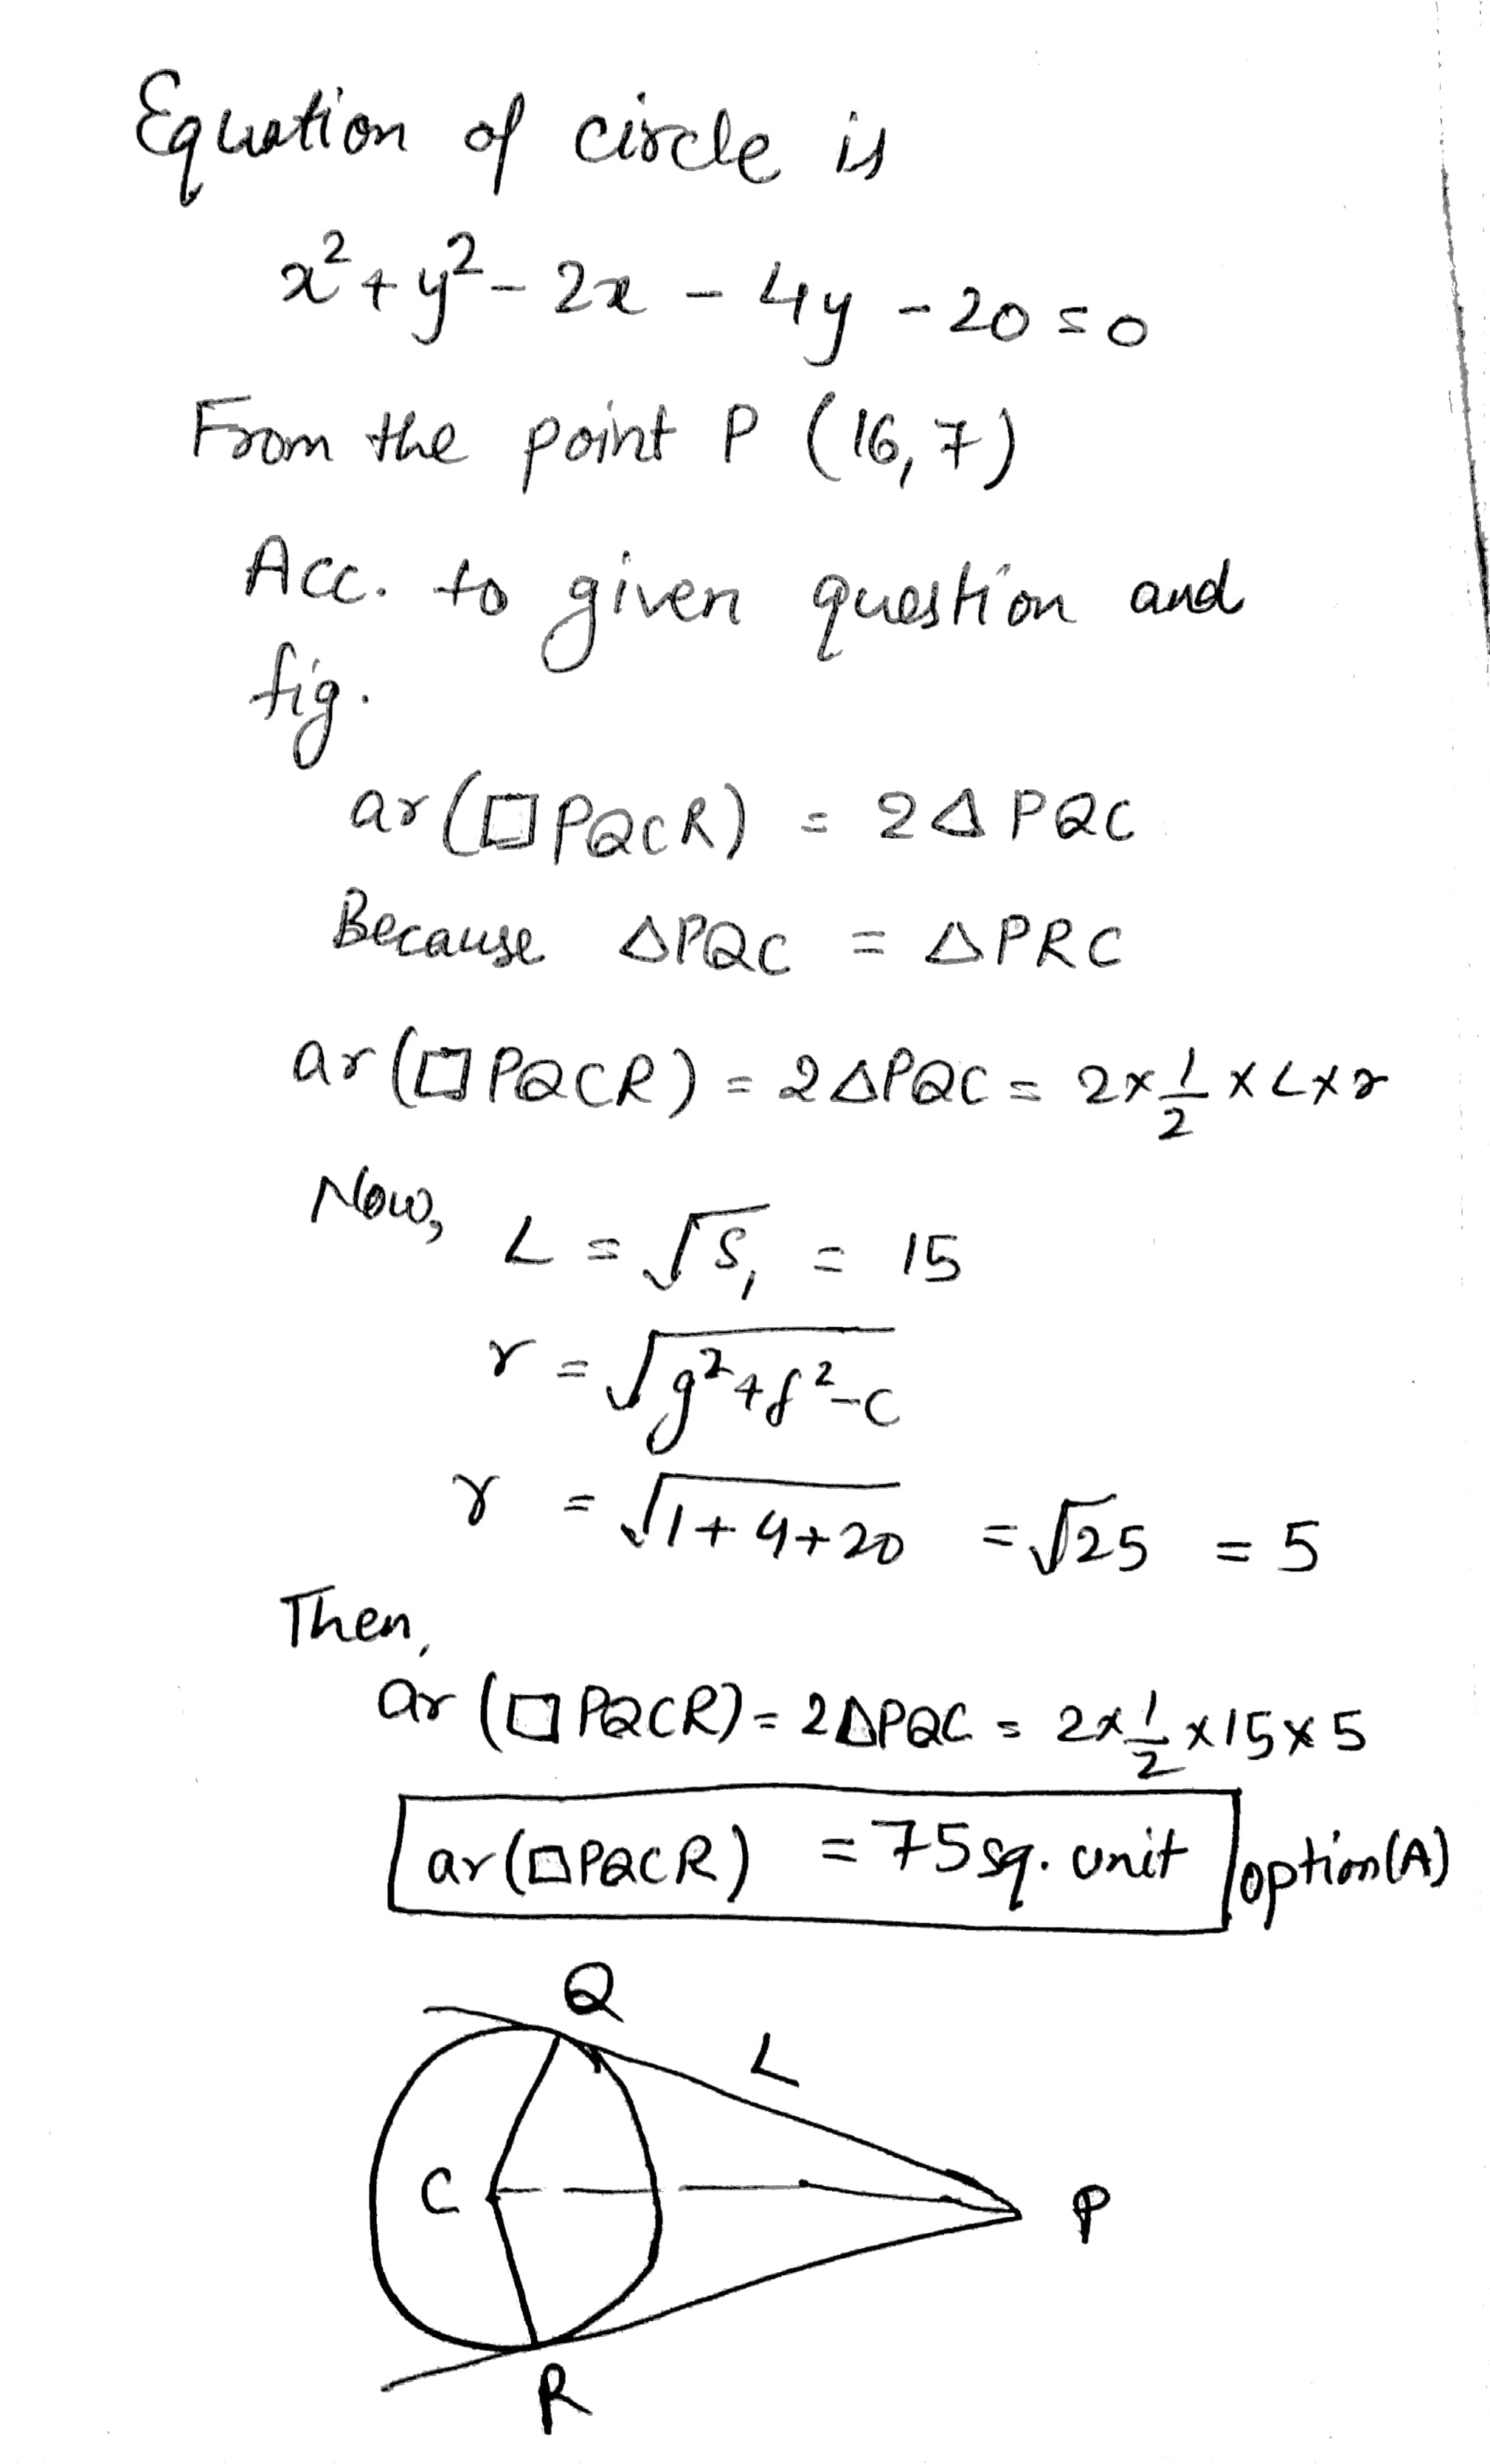 Equation of circle is
x² + y² - 2x - 4y - 20 = 0
From the point P (16, 7)
Acc. to given question and
fig.
ar(□PQCR) = 2△PQC
Because △PQC = △PRC
ar(□PQCR) = 2△PQC = 2×1/2×L×r
Now,
L = √S₁ = 15
r = √(g²+f²-c)
r = √(1+4+20) = √25 = 5
Then,
ar(□PQCR) = 2△PQC = 2×1/2×15×5
ar(□PQCR) = 75 sq. unit option(A)
Q
L
C
P
R